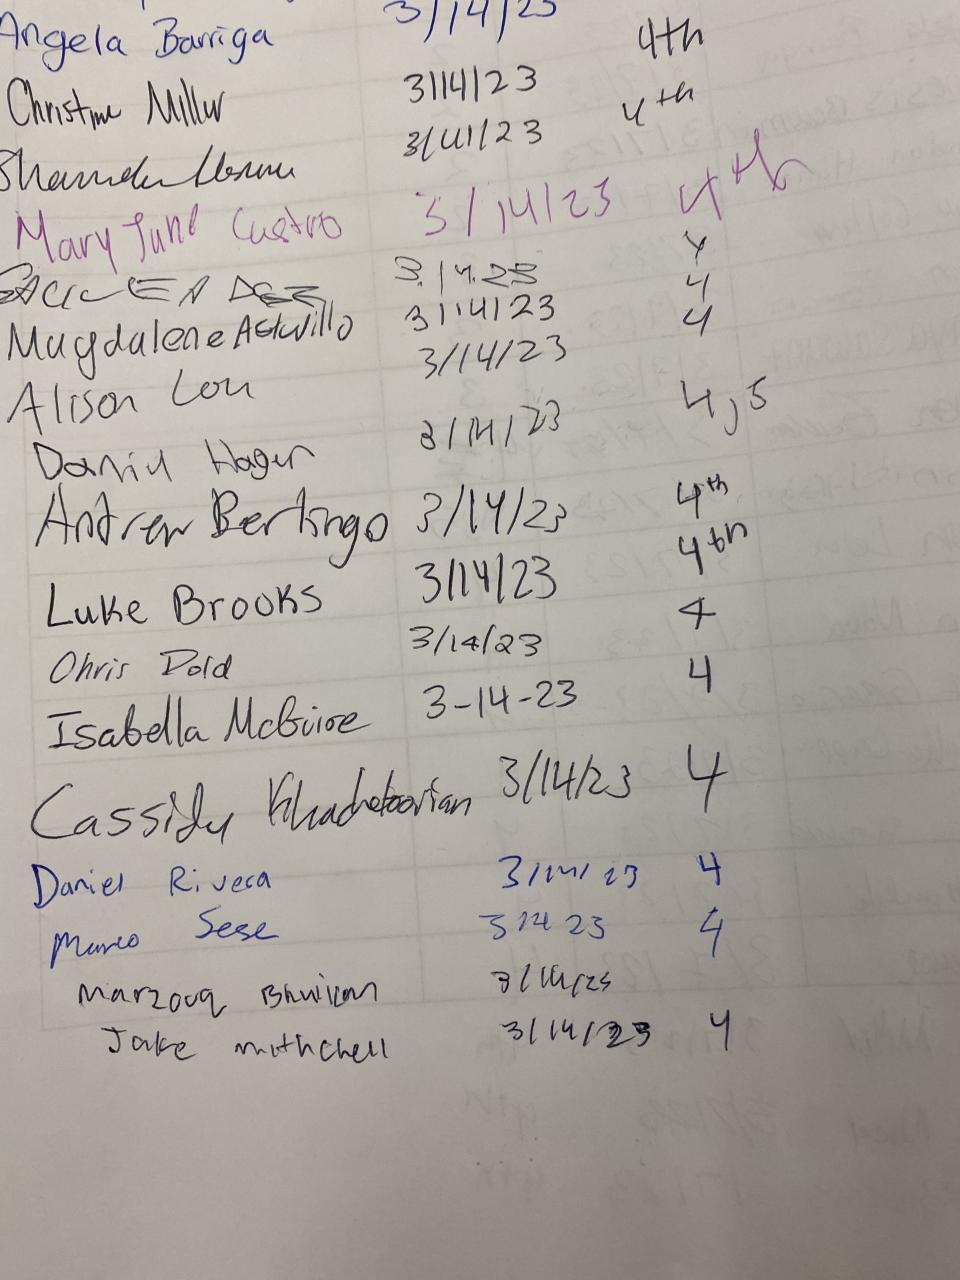 Angela Barriga 3/14/23
Christine Miller 3/14/23 4th
3/14/23 4th
Mary June Castro 3/14/23 4th
3.14.23 4
Magdalene Astwillo 3/14/23 4
Alison Lou 3/14/23 4
Daniel Hagen 3/14/23 4,5
Andrew Bertingo 3/14/23 4th
Luke Brooks 3/14/23 4th
Chris Dold 3/14/23 4
Isabella McGuire 3-14-23 4
Cassidy Khachatoorian 3/14/23 4
Daniel Rivera 3/14/23 4
Marco Sese 3 14 23 4
Marzouq Bhuiyan 3/14/23
Jake mithchell 3/14/23 4